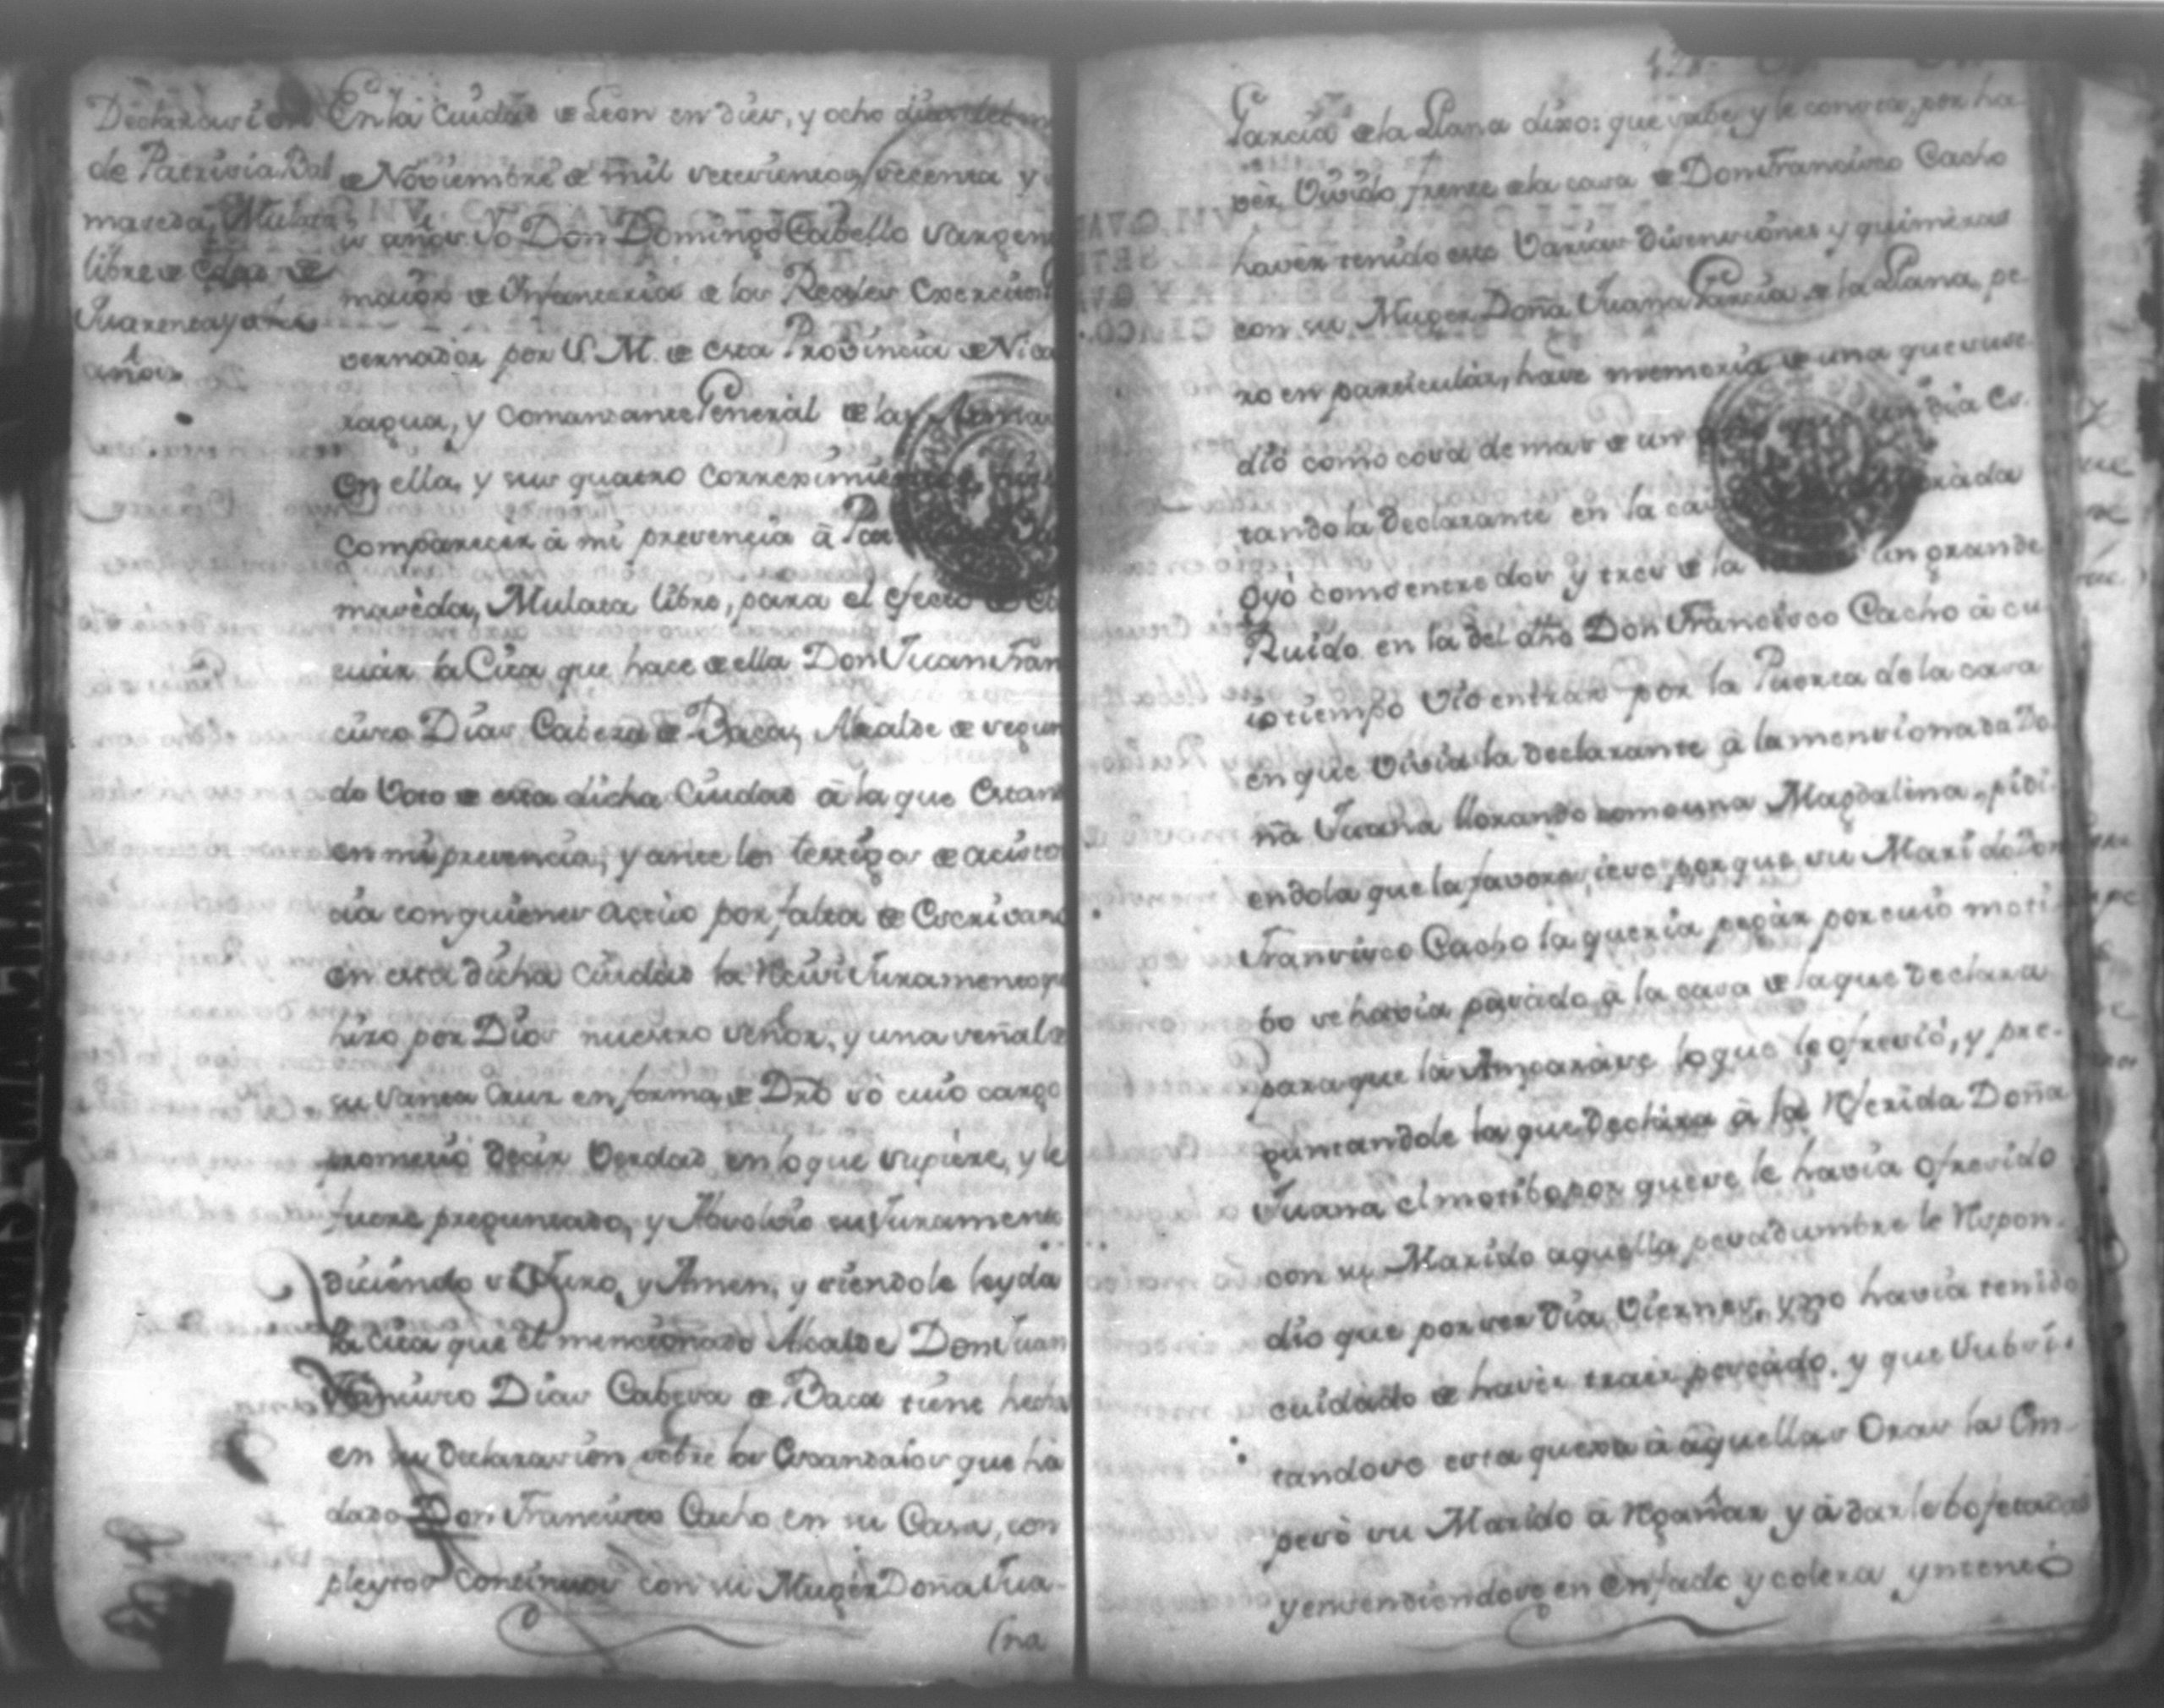 Declaracion
de Patricia Bal
maseda, Mulata
libre de edad de
Quarenta y
años.
En la Ciudad de Leon en diez, y ocho dias del
de Noviembre de mil setecientos, setenta y
is años Yo Don Domingo Cabello Sargen
maior de Infanteria de los Reales Exercitos
vernador por S. M. de esta Provincia de Nica
ragua, y Comandante General de las Armas
en ella, y sus quatro Correximientos,
Comparecer â mi presencia â
maseda, Mulata libre, para el efecto de
cuàr la Cita que hace de ella Don Juan Fran
cisco Diaz Cabeza de Baca, Alcalde de segun
do Voto de esta dicha Ciudad â la que Estand
en mi presencia, y ante los testigos de asisten
cia con quienes actúo por falta de Escrivano
en esta dicha Ciudad la Reciví Juramento q
hizo por Dios nuestro señor, y una señal de
su santa Cruz en forma de Dro sò cuio cargo
prometió decir Verdad en lo que supiere, y le
fuere preguntado, y Absolvio su Juramento
diciendo si Juro, y Amen, y siendole leyda
la cita que el mencionado Alcalde Don Juan
Francisco Diaz Cabeza de Baca tiene hecha
en su declaracion sobre los Escandalos que hà
dado Don Francisco Cacho en su Casa, con
pleytos Continuos con su Muger Doña Jua-
[na
Garcia de la Llana dixo: que sabe, y le consta, por ha
vèr Vivido frente de la casa de Don Francisco Cacho
haver tenido este Varias disenciones y quimèras
con su Muger Doña Juana Garcia de la Llana, pe
ro en particulàr, hace memoria de una que suce
dió como cosa de mas de un un dia Es
tando la declarante en la
Oyó como entre dos y tres de la un grande
Ruido en la del dho Don Francisco Cacho â cu
io tiempo vio entrar por la Puerta de la casa
en que Vivia la declarante â la mencionada Do
ña Juana llorando como una Magdalena, pidi
endola que la favoreciese, porque su Marido Don
Francisco Cacho la queria pegàr por cuio moti
bo se havia pasàdo â la casa de la que declara
para que la Amparàse lo que le ofreció, y pre-
guntandole la que declara â la Referida Doña
Juana el motibo por que se le havia ofrecido
con su Marido aquella pesadumbre le Respon-
dio que por ser dia Viernes, y no havia tenido
cuidado de hacer traer pescàdo, y que Subci-
tandose esta quexa â aquellas Oras la Em-
pesò su Marido â Regañar y â darle bofetadas
y encendiendose en enfado y colera yntentó